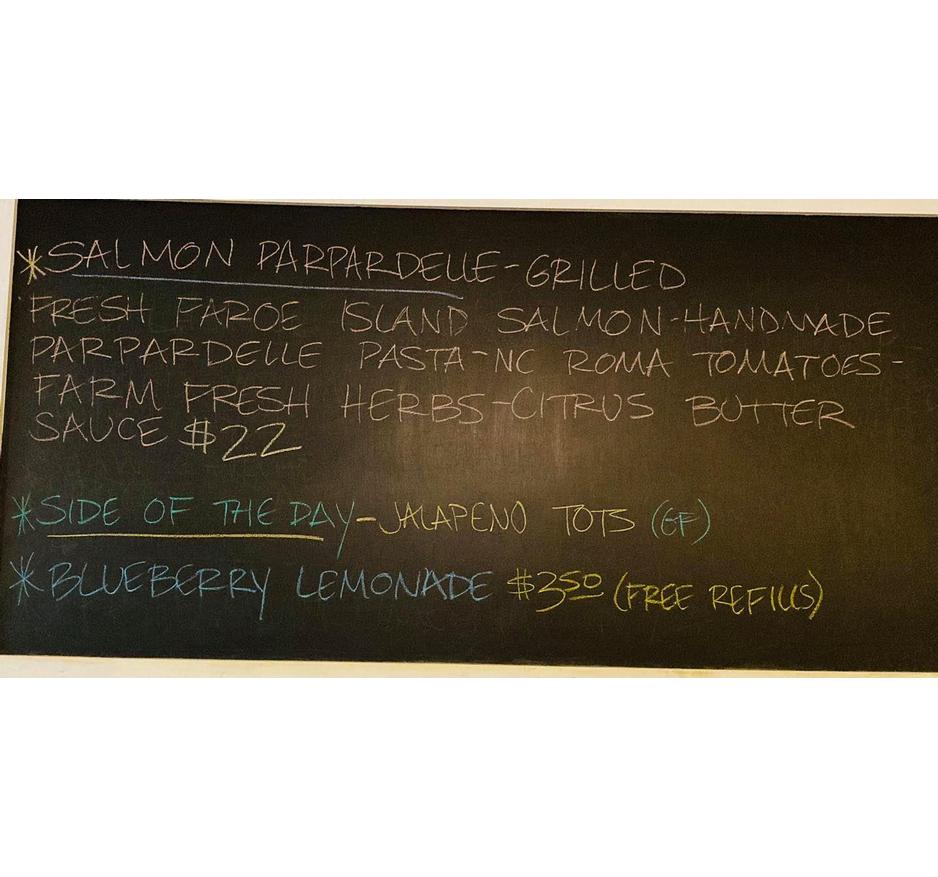 *SALMON PARPARDELLE-GRILLED
FRESH FAROE ISLAND SALMON-HANDMADE
PARPARDELLE PASTA-NC ROMA TOMATOES-
FARM FRESH HERBS-CITRUS BUTTER
SAUCE $22
*SIDE OF THE DAY-JALAPENO TOTS (GF)
*BLUEBERRY LEMONADE $350 (FREE REFILLS)